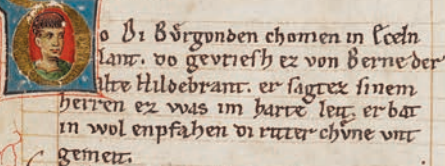 Do Di Bvrgonden chomen in Eceln
lant. do gevriesh ez von Berne der
alte Hildebrant. er sagtez sinem
herren ez was im harte leit. er bat
in wol enpfahen di ritter chvne unt
gemeit.